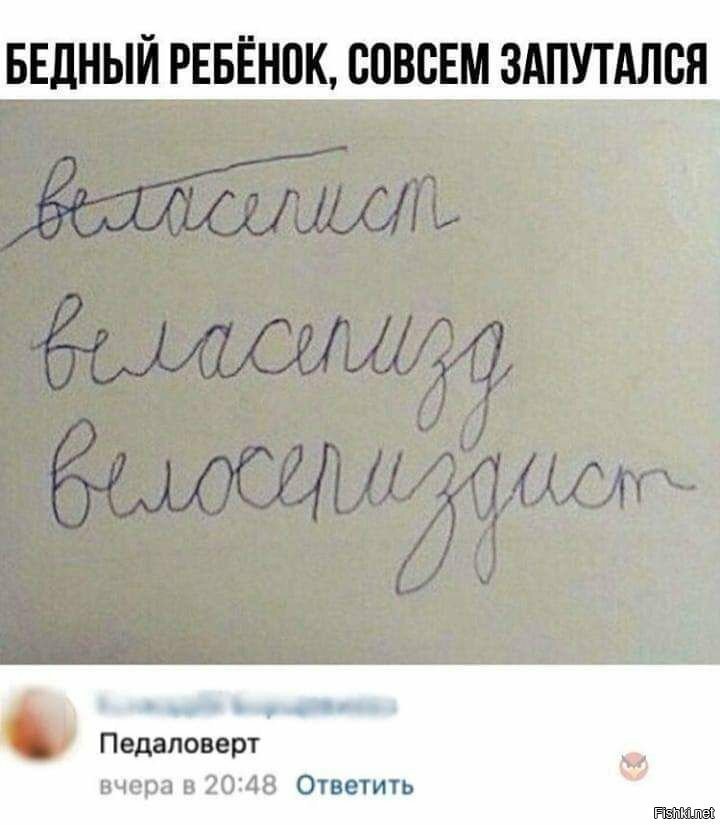 БЕДНЫЙ РЕБЁНОК, СОВСЕМ ЗАПУТАЛСЯ
веласепист
веласепизд
велосепиздист
Педаловерт
вчера в 20:48 Ответить
Fishki.net